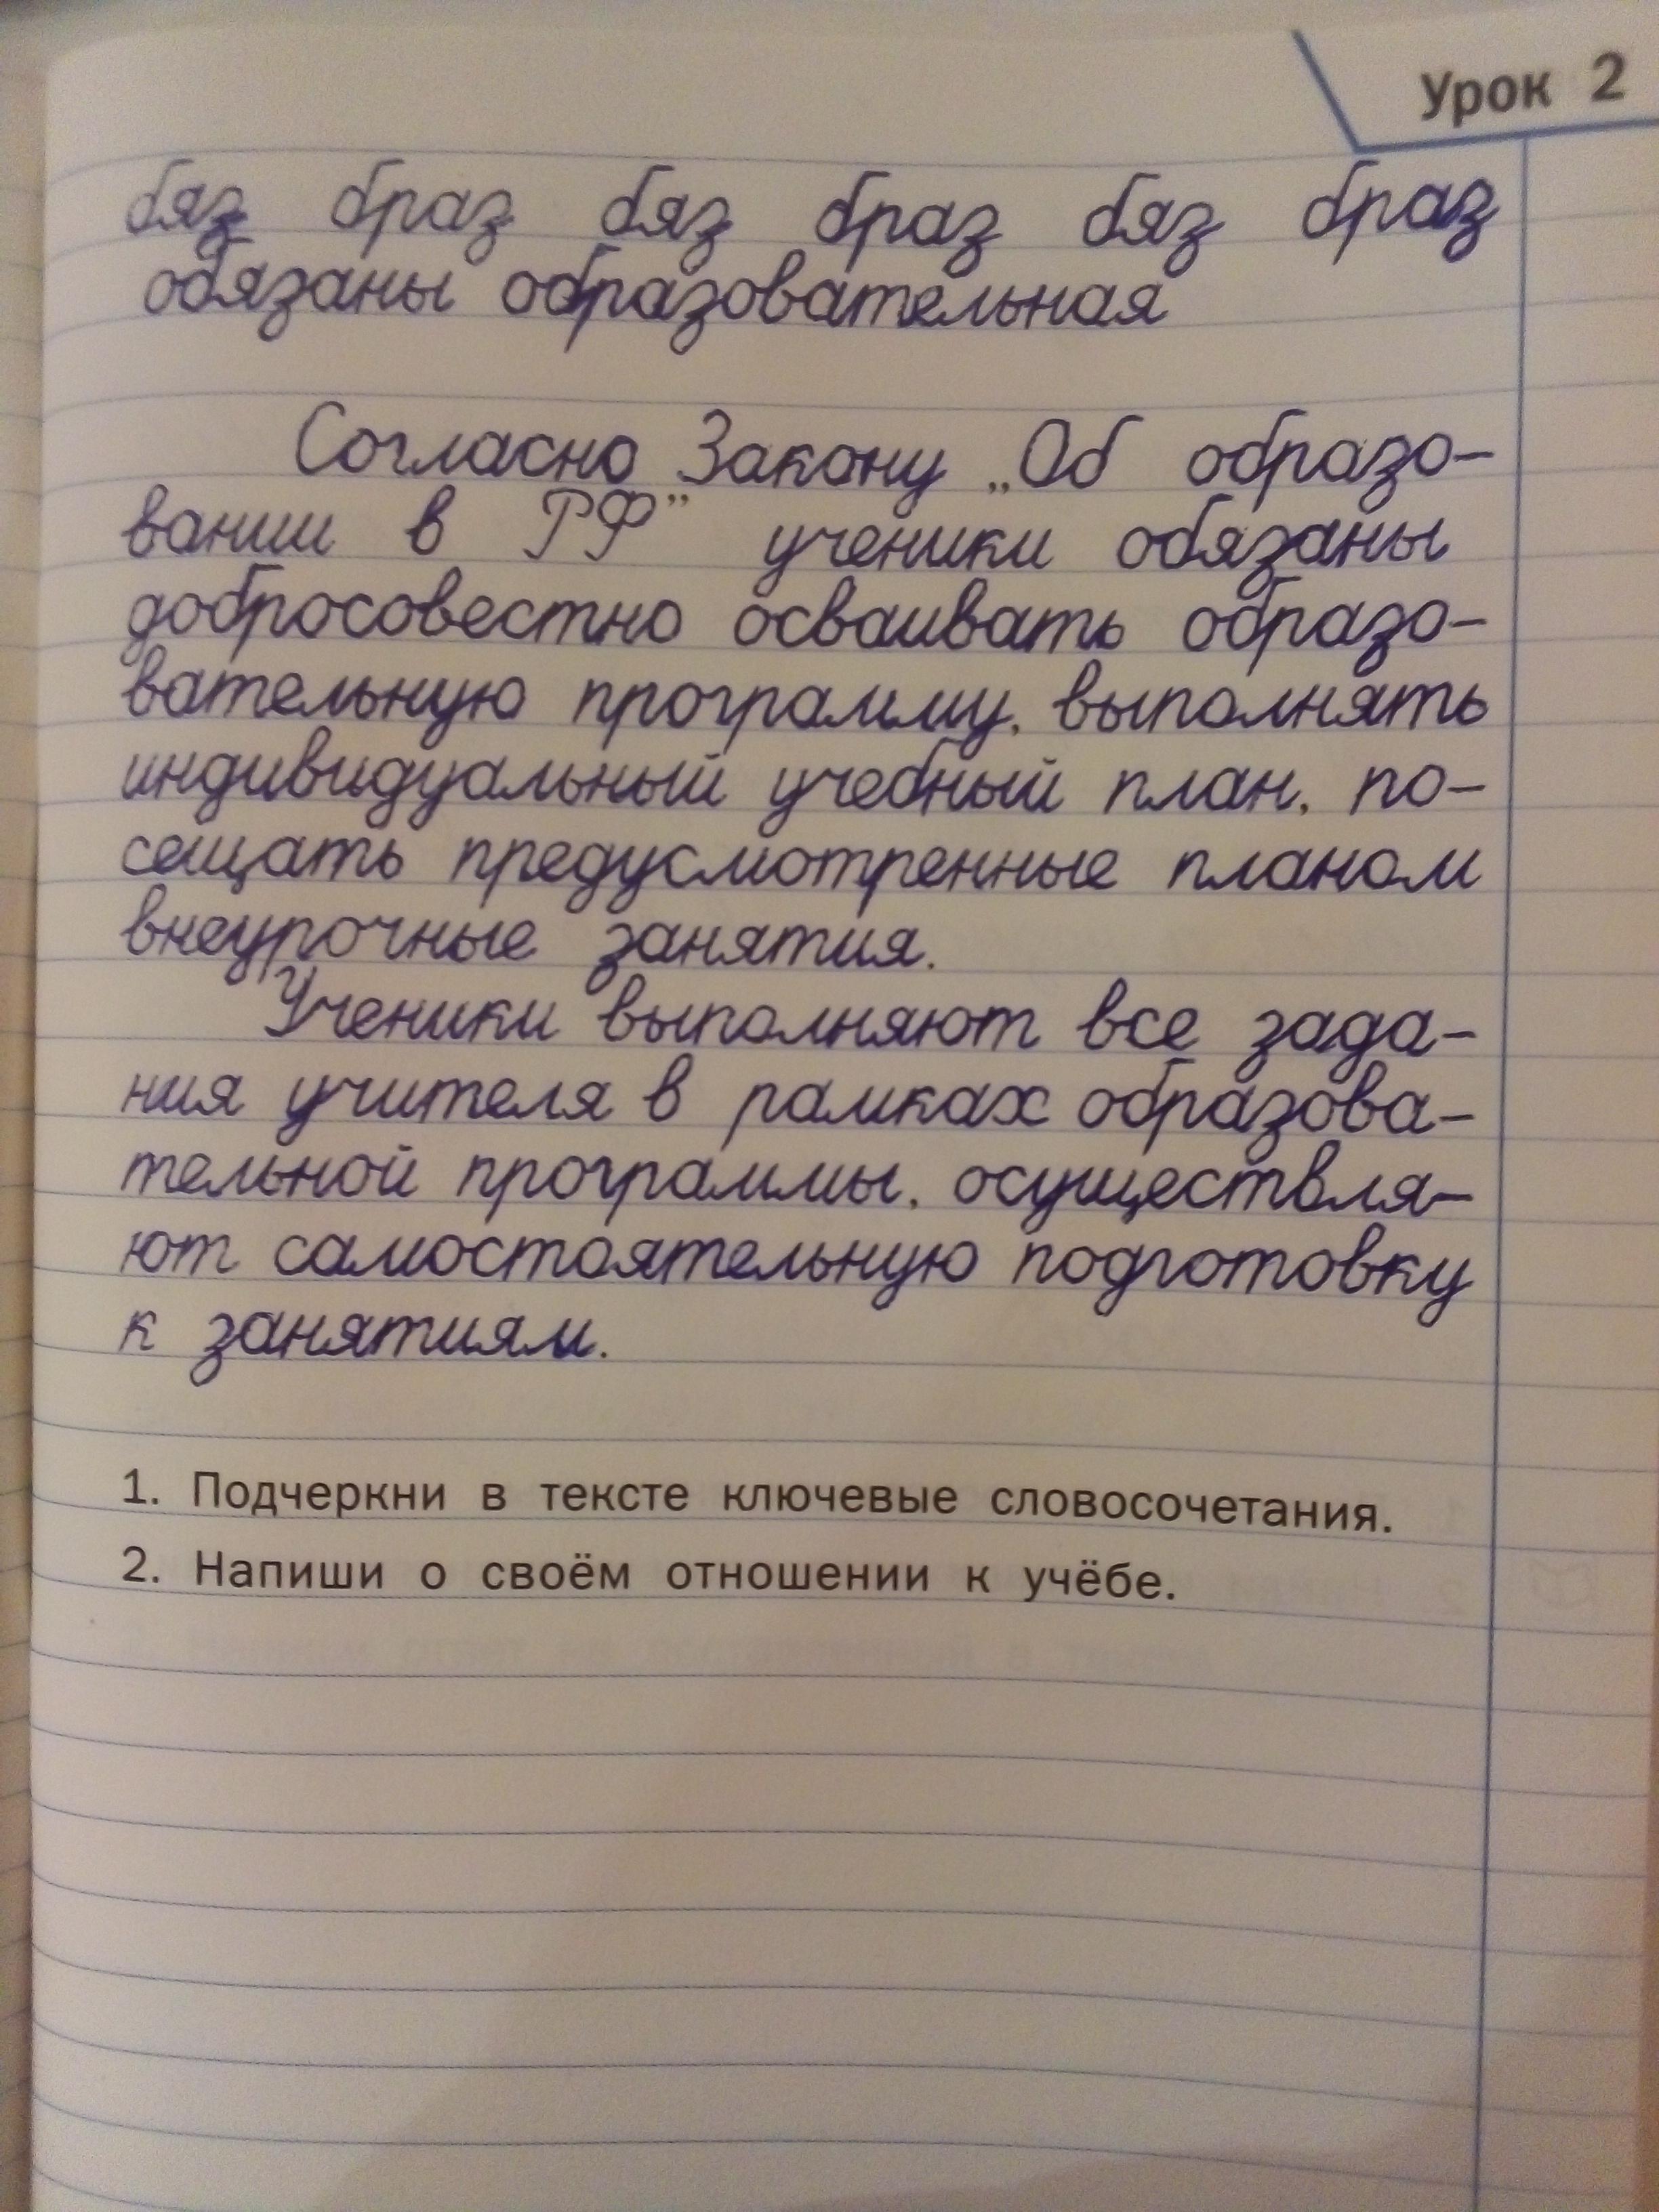 Урок 2
бяз браз бяз браз бяз браз
обязаны образовательная
Согласно Закону „Об образо-
вании в РФ” ученики обязаны
добросовестно осваивать образо-
вательную программу, выполнять
индивидуальный учебный план, по-
сещать предусмотренные планом
внеурочные занятия.
Ученики выполняют все зада-
ния учителя в рамках образова-
тельной программы, осуществля-
ют самостоятельную подготовку
к занятиям.
1. Подчеркни в тексте ключевые словосочетания.
2. Напиши о своём отношении к учёбе.